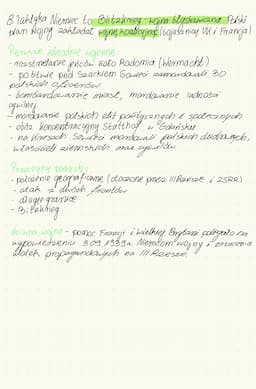 8. Taktyka Niemiec to Blitzkrieg - wojna błyskawiczna. Polski
plan wojny zakładał wojnę koalicyjną (sojusznicy UK i Francja)
Pierwsze zbrodnie wojenne:
- rozstrzelanie jeńców koło Radomia (Wermacht)
- po bitwie pod Szackiem Sowieci zamordowali 30
polskich oficerów
- bombardowanie miast, mordowanie ludności
cywilnej
- mordowanie polskich elit politycznych i społecznych
- obóz koncentracyjny Stutthof w Gdańsku
- na kresach Sowieci mordowali polskich duchownych,
właścicieli ziemskich oraz cywilów.
Przyczyny porażki:
- położenie geograficzne (otoczone przez III Rzeszę i ZSRR)
- atak z dwóch frontów
- długie granice
- Blitzkrieg
wojny - pomoc Francji i Wielkiej Brytanii polegała na
wypowiedzeniu 3.09.1939r. Niemcom wojny i zrzucaniu
ulotek propagandowych na III Rzeszę.